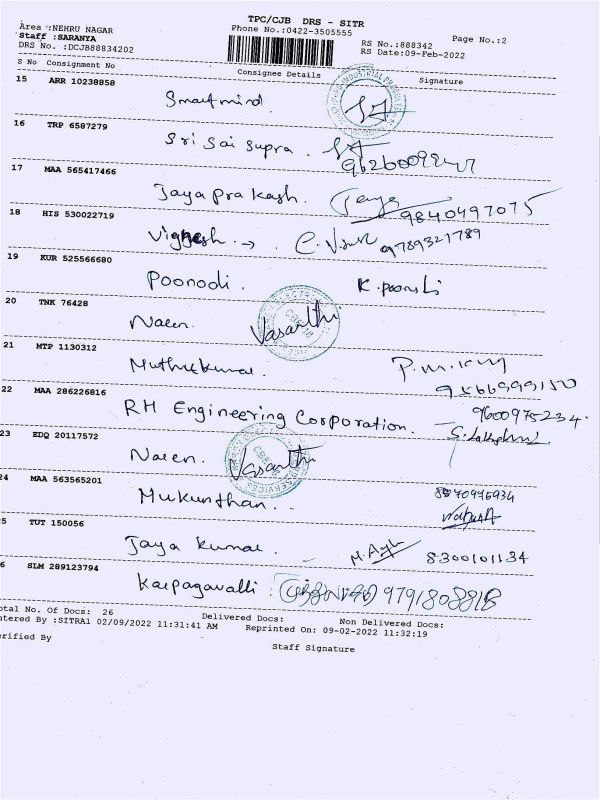 TPC/CJB DRS - SITR
Area :NEHRU NAGAR
Phone No.:0422-3505555
Page No.:2
Staff :SARANYA
RS No.:888342
DRS No. :DCJB88834202
RS Date:09-Feb-2022
S No Consignment No Consignee Details Signature
15 ARR 10238858
Smartmind.
16 TRP 6587279
Sri Sai Supra.
17 MAA 565417466
Jayaprakash. Jaya 9840497075
18 HIS 530022719
Vignesh. → 9789321789
19 KUR 525566680
Poonodi. K. poonodi
20 TNK 76428
Naren. Vasanthi
21 MTP 1130312
Muthukumar.
22 MAA 286226816
9600975234.
RH Engineering Corporation.
23 EDQ 20117572
Naren. Vasanthi
24 MAA 563565201
Mukunthan..
25 TUT 150056
Jaya kumar. 8300101134
26 SLM 289123794
Karpagavalli. 9791808818
Total No. Of Docs: 26 Delivered Docs: Non Delivered Docs:
Entered By :SITRA1 02/09/2022 11:31:41 AM Reprinted On: 09-02-2022 11:32:19
Verified By
Staff Signature